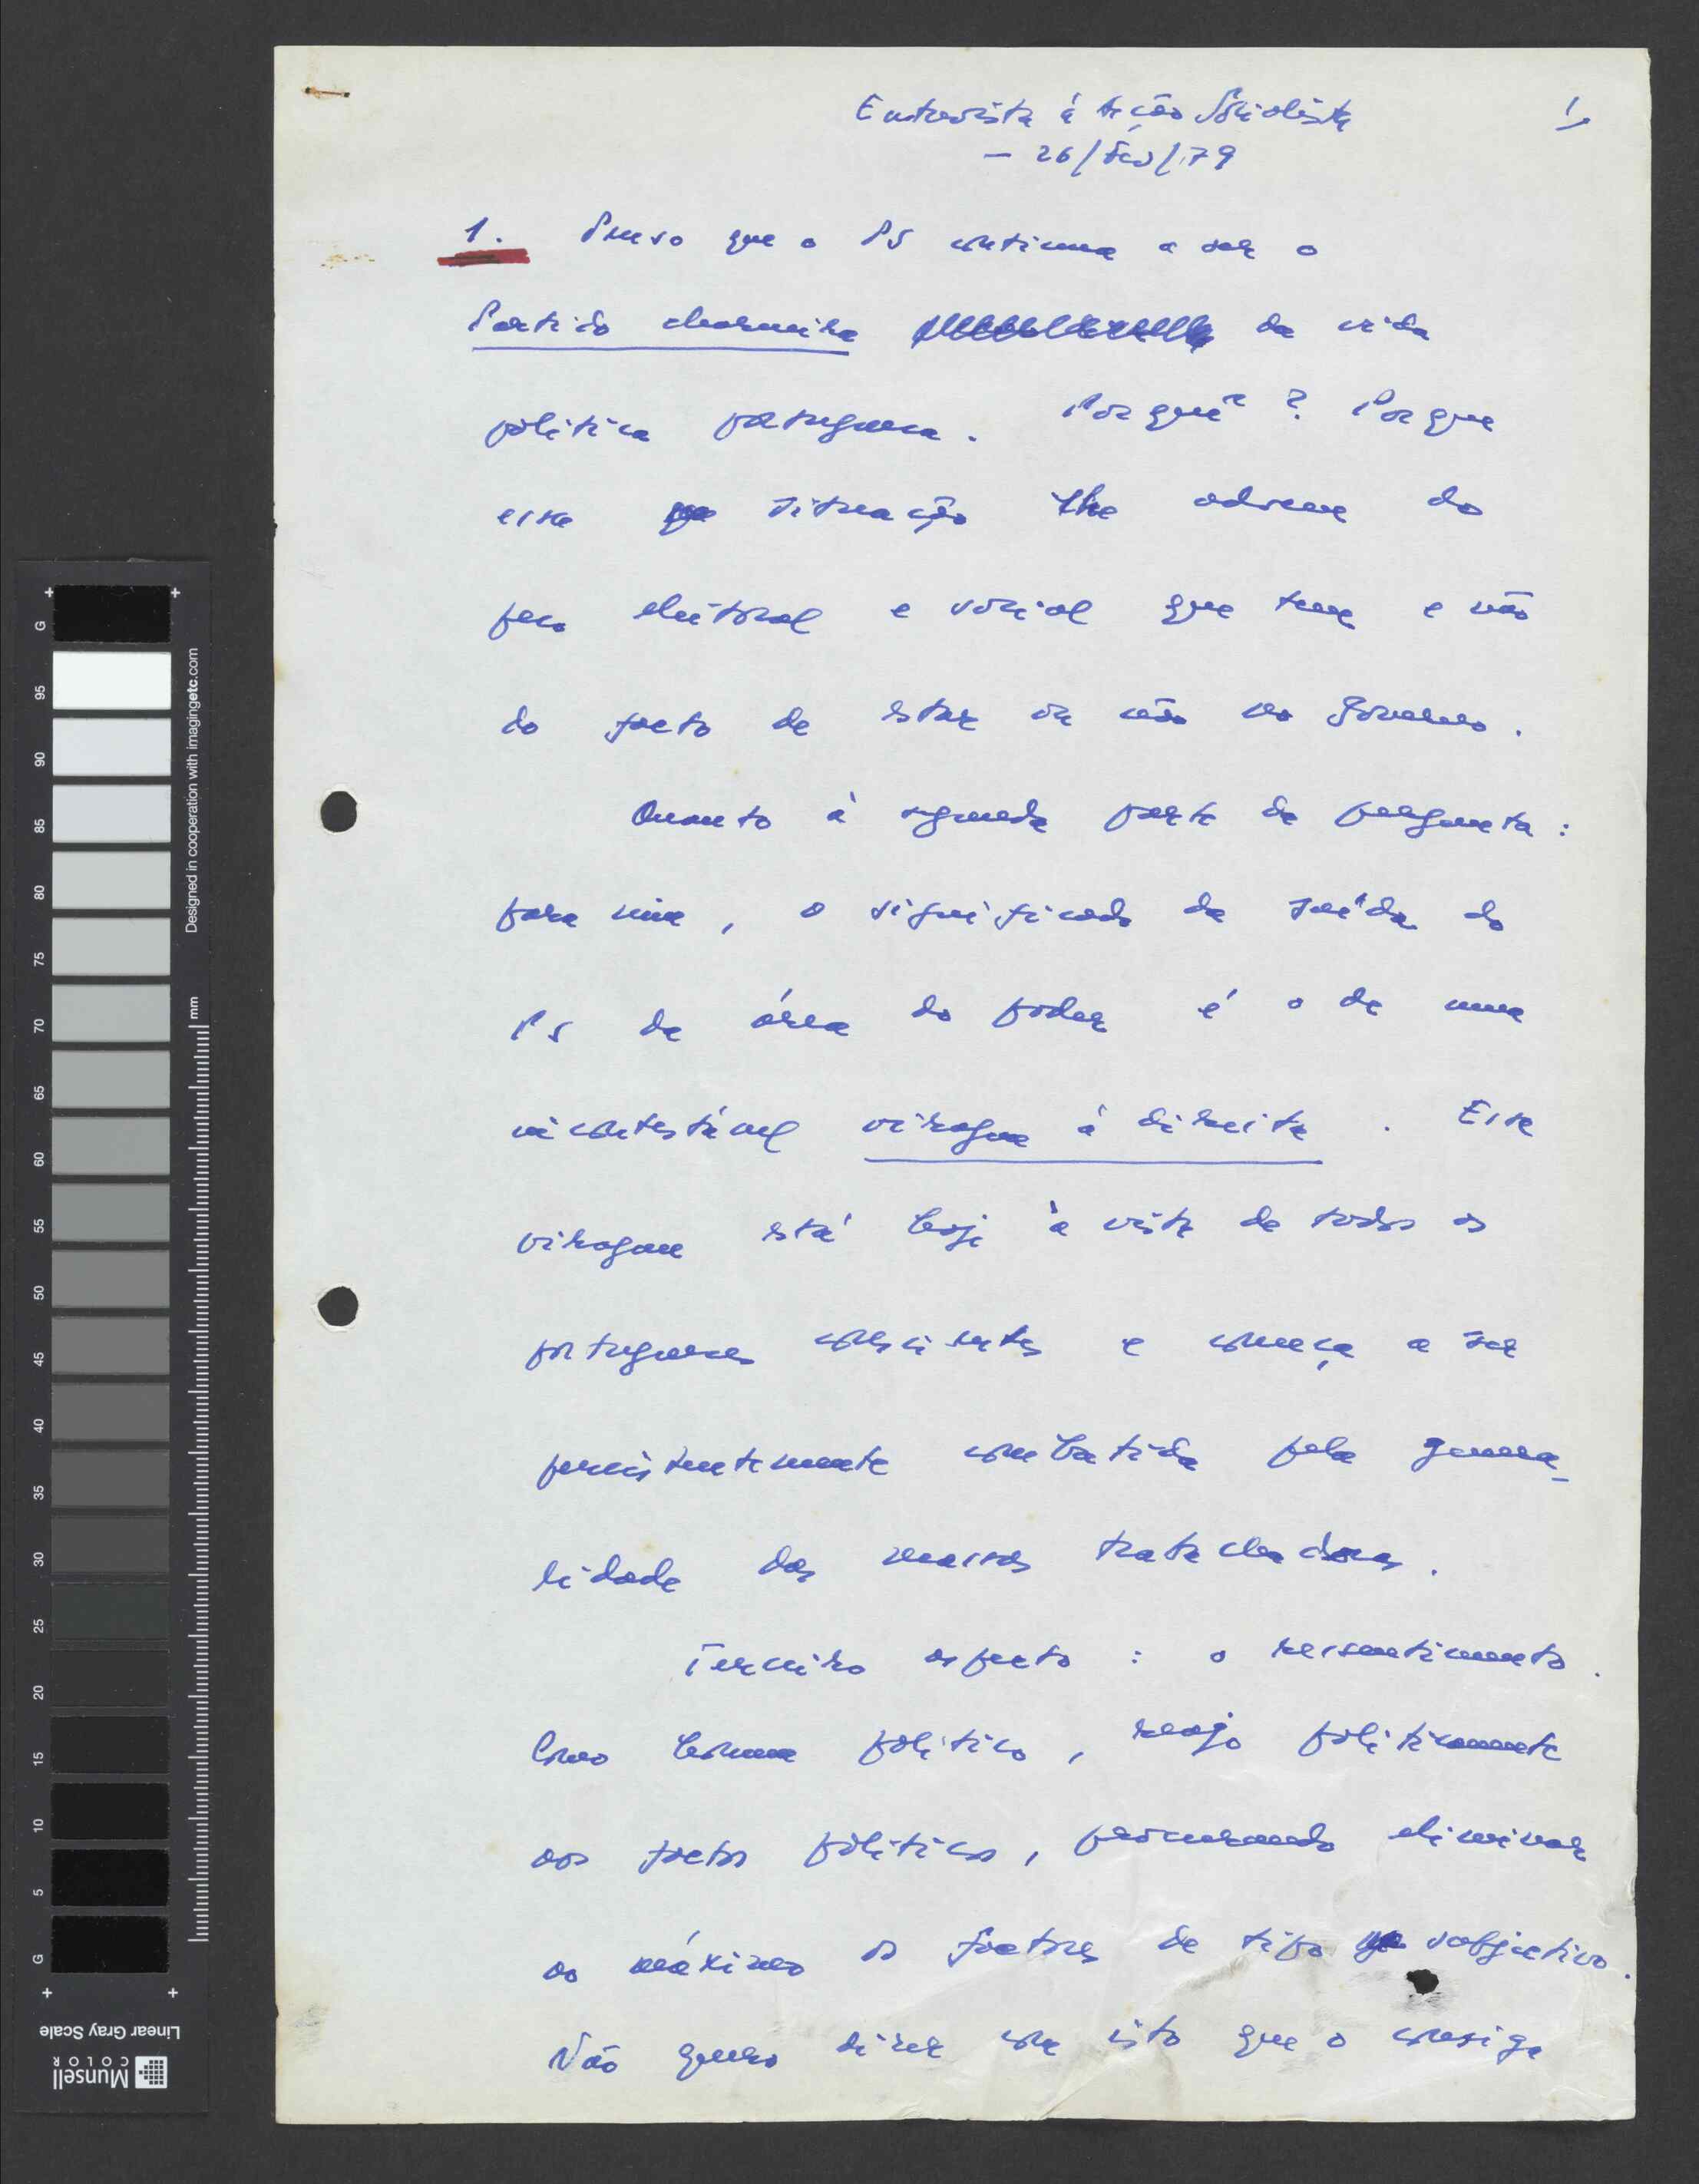 Entrevista à Acção Socialista
1
— 26/Fev/79
1. Penso que o PS continua a ser o
Partido charneira da vida
política portuguesa. Porquê? Porque
essa situação lhe advem do
peso eleitoral e social que tem e não
do facto de estar ou não no Governo.
Quanto à segunda parte da pergunta:
para mim, o significado da saída do
PS da área do poder é o de uma
incontestável viragem à direita. Essa
viragem está hoje à vista de todos os
portugueses conscientes e começa a ser
persistentemente combatida pela genera-
lidade das massas trabalhadoras.
Terceiro aspecto: o ressentimento.
Como homem político, reajo politicamente
aos factos políticos, procurando eliminar
ao máximo os factores de tipo subjectivo.
Não quero dizer com isto que o consiga
G 95 90 85 80 75 70 65 60 55 50 45 40 35 30 25 20 15 10 5 G
Designed in cooperation with imagingetc.com
mm
Linear Gray Scale
Munsell
COLOR